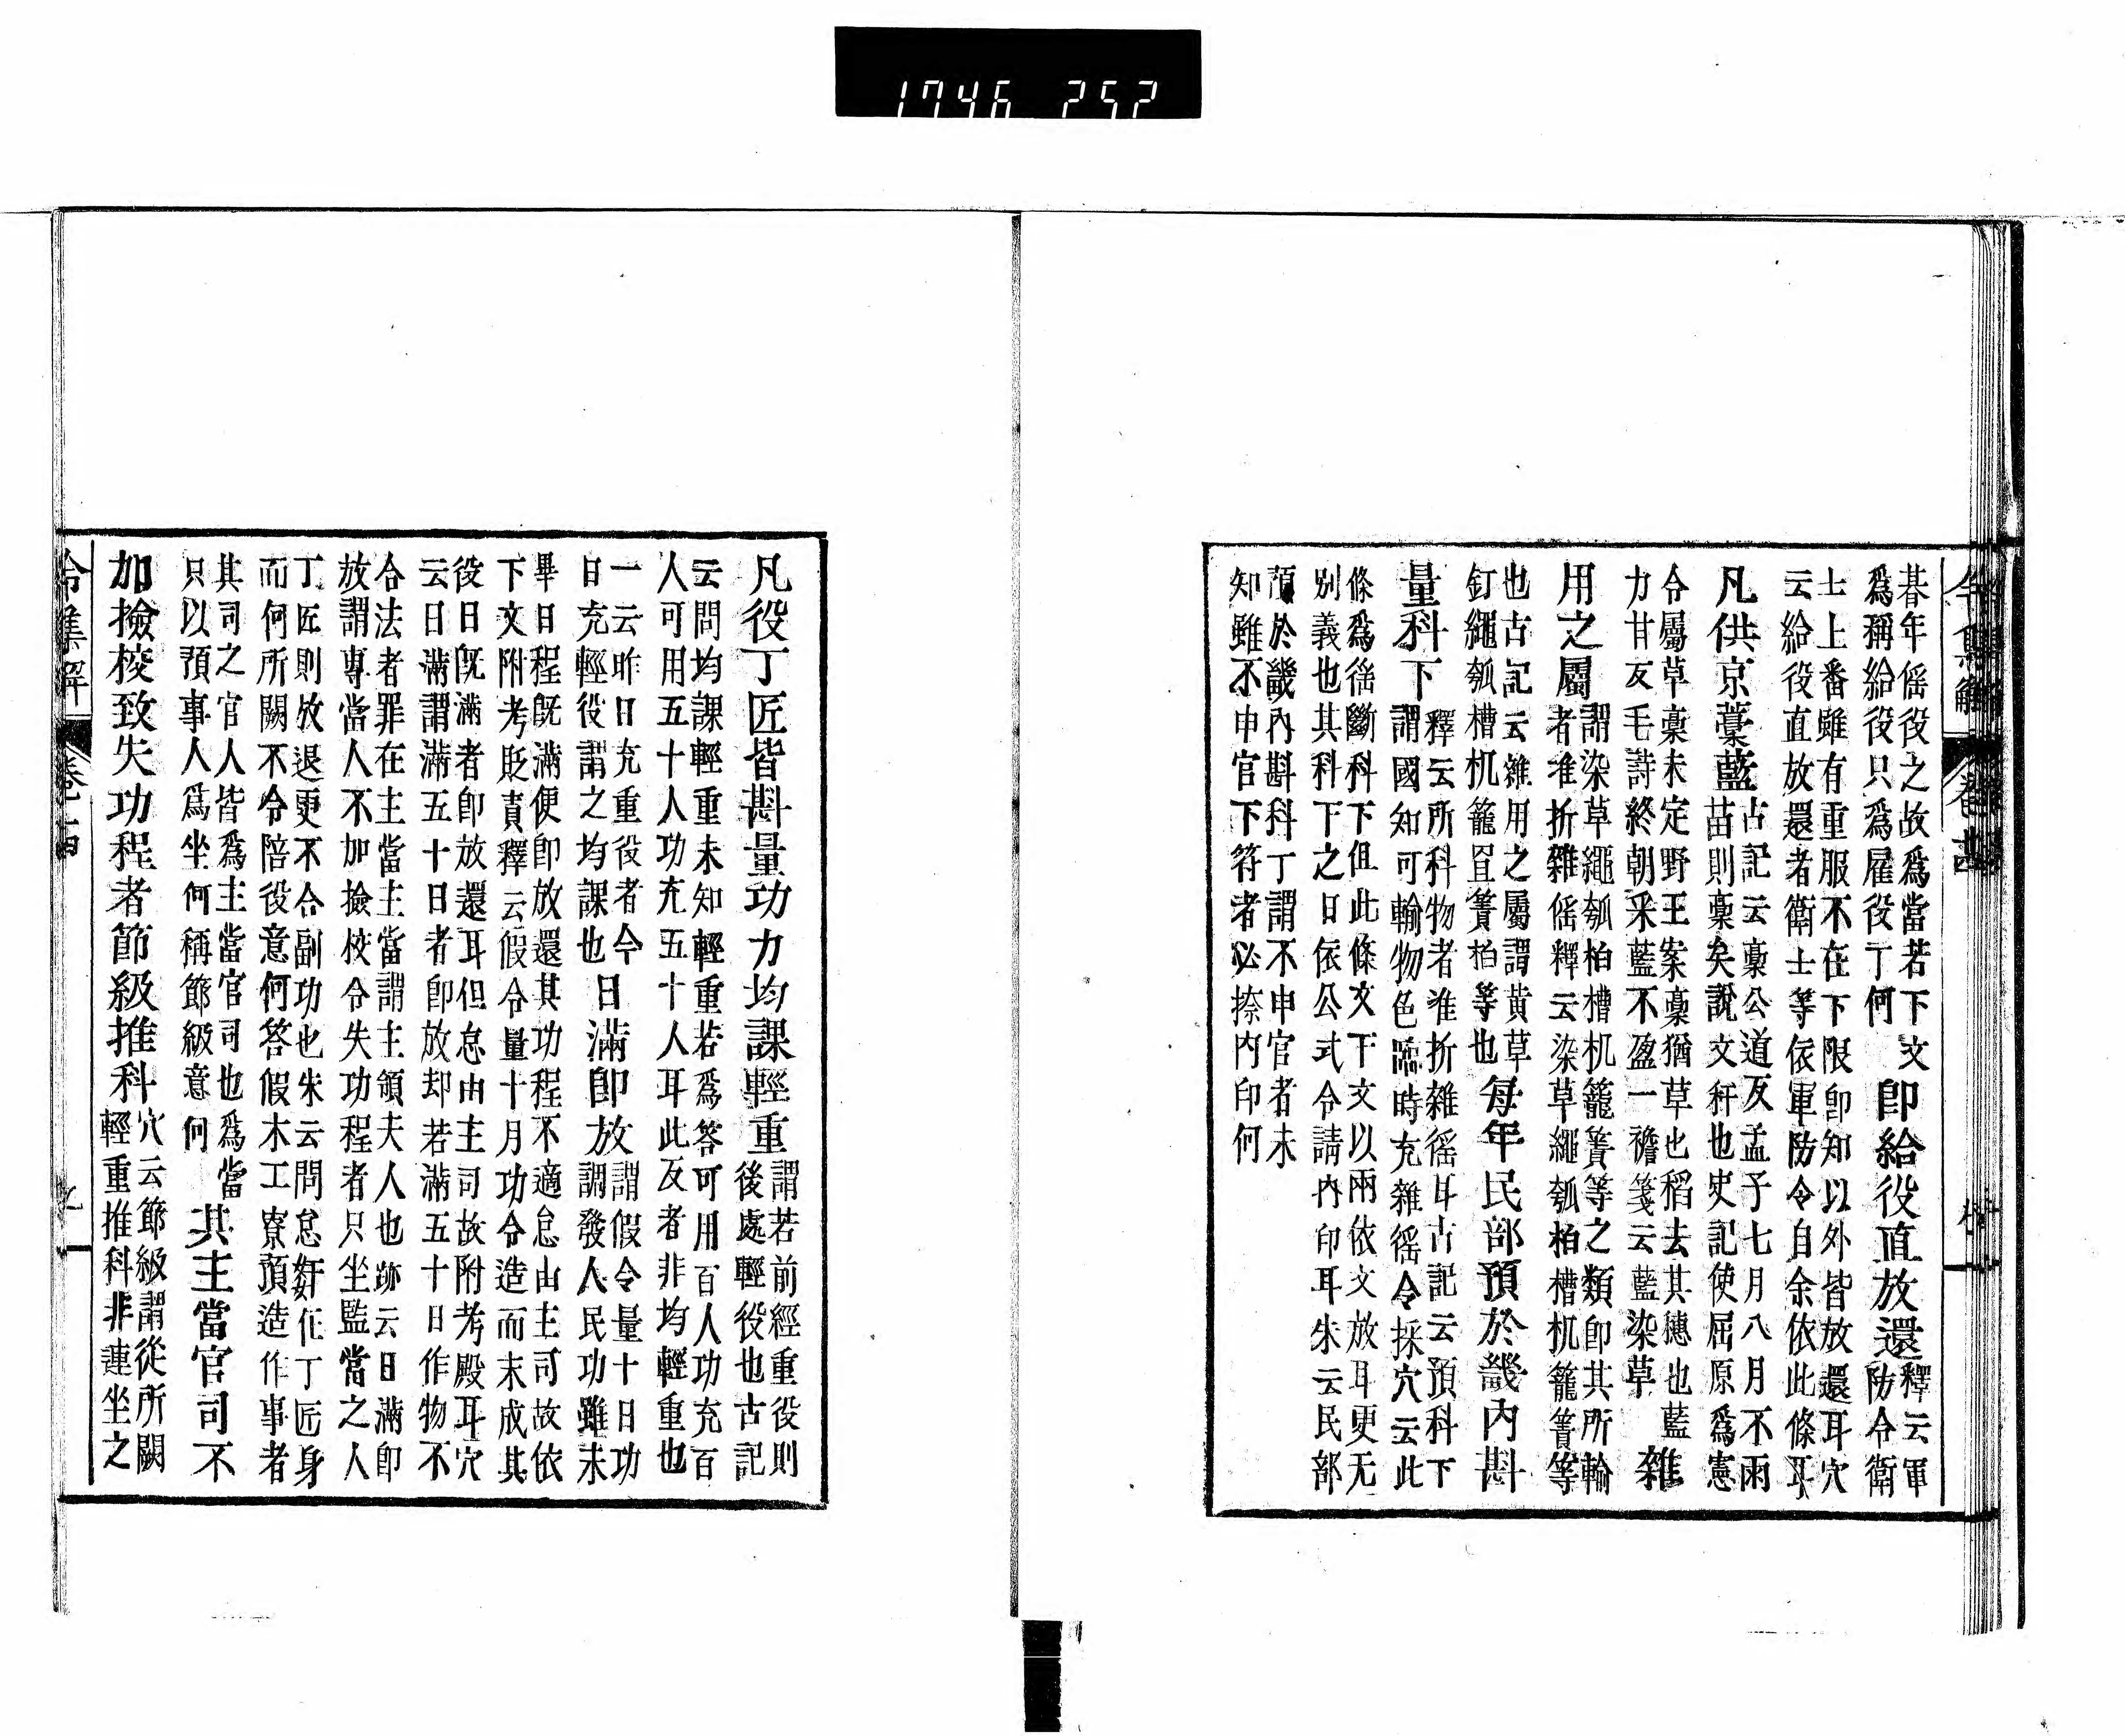 1746 252
朞年徭役之故爲當若下文
爲稱給役只爲雇役丁何
即給役直放還
釋云軍
防令衛
士上番雖有重服不在下限即知以外皆放還耳穴
云給役直放還者衛士等依軍防令自余依此條耳
凡供京藁藍
古記云藁公道反孟子七月八月不雨
苗則藁矣說文秆也史記使屈原爲憲
令屬草藁未定野王案藁猶草也稻去其穗也藍
力甘反毛詩終朝采藍不盈一襜箋云藍染草
雜
用之屬
謂染草繩瓠柏槽机籠簀等之類即其所輸
者准折雜徭釋云染草繩瓠柏槽机籠簀等
也古記云雜用之屬謂黃草
釘繩瓠槽机籠罝簀柏等也
每年民部預於畿內斟
量科下
釋云所科物者准折雜徭耳古記云預科下
謂國知可輸物色臨時充雜徭令採穴云此
條爲徭斷科下但此條文下文以兩依文放耳更无
別義也其科下之日依公式令請內印耳朱云民部
預於畿內斟科丁謂不申官者未
知雖不申官下符者必捺內印何
令集解
卷十四
凡役丁匠皆斟量功力均課輕重
謂若前經重役則
後處輕役也古記
云問均課輕重未知輕重若爲答可用百人功充百
人可用五十人功充五十人耳此反者非均輕重也
一云昨日充重役者今
日充輕役謂之均課也
日滿即放
謂假令量十日功
調發人民功雖未
畢日程既滿便即放還其功程不適怠由主司故依
下文附考貶責釋云假令量十月功令造而未成其
役日既滿者即放還耳但怠由主司故附考殿耳穴
云日滿謂滿五十日者即放却若滿五十日作物不
合法者罪在主當主當謂主領夫人也跡云日滿即
放謂專當人不加撿校令失功程者只坐監當之人
丁匠則放退更不合副功也朱云問怠姧仕丁匠身
而何所闕不令陪役意何答假木工寮預造作事者
其司之官人皆爲主當官司也爲當
只以預事人爲坐何稱節級意何
其主當官司不
加撿校致失功程者節級推科
穴云節級謂從所闕
輕重推科非連坐之
令集解
卷十四
九